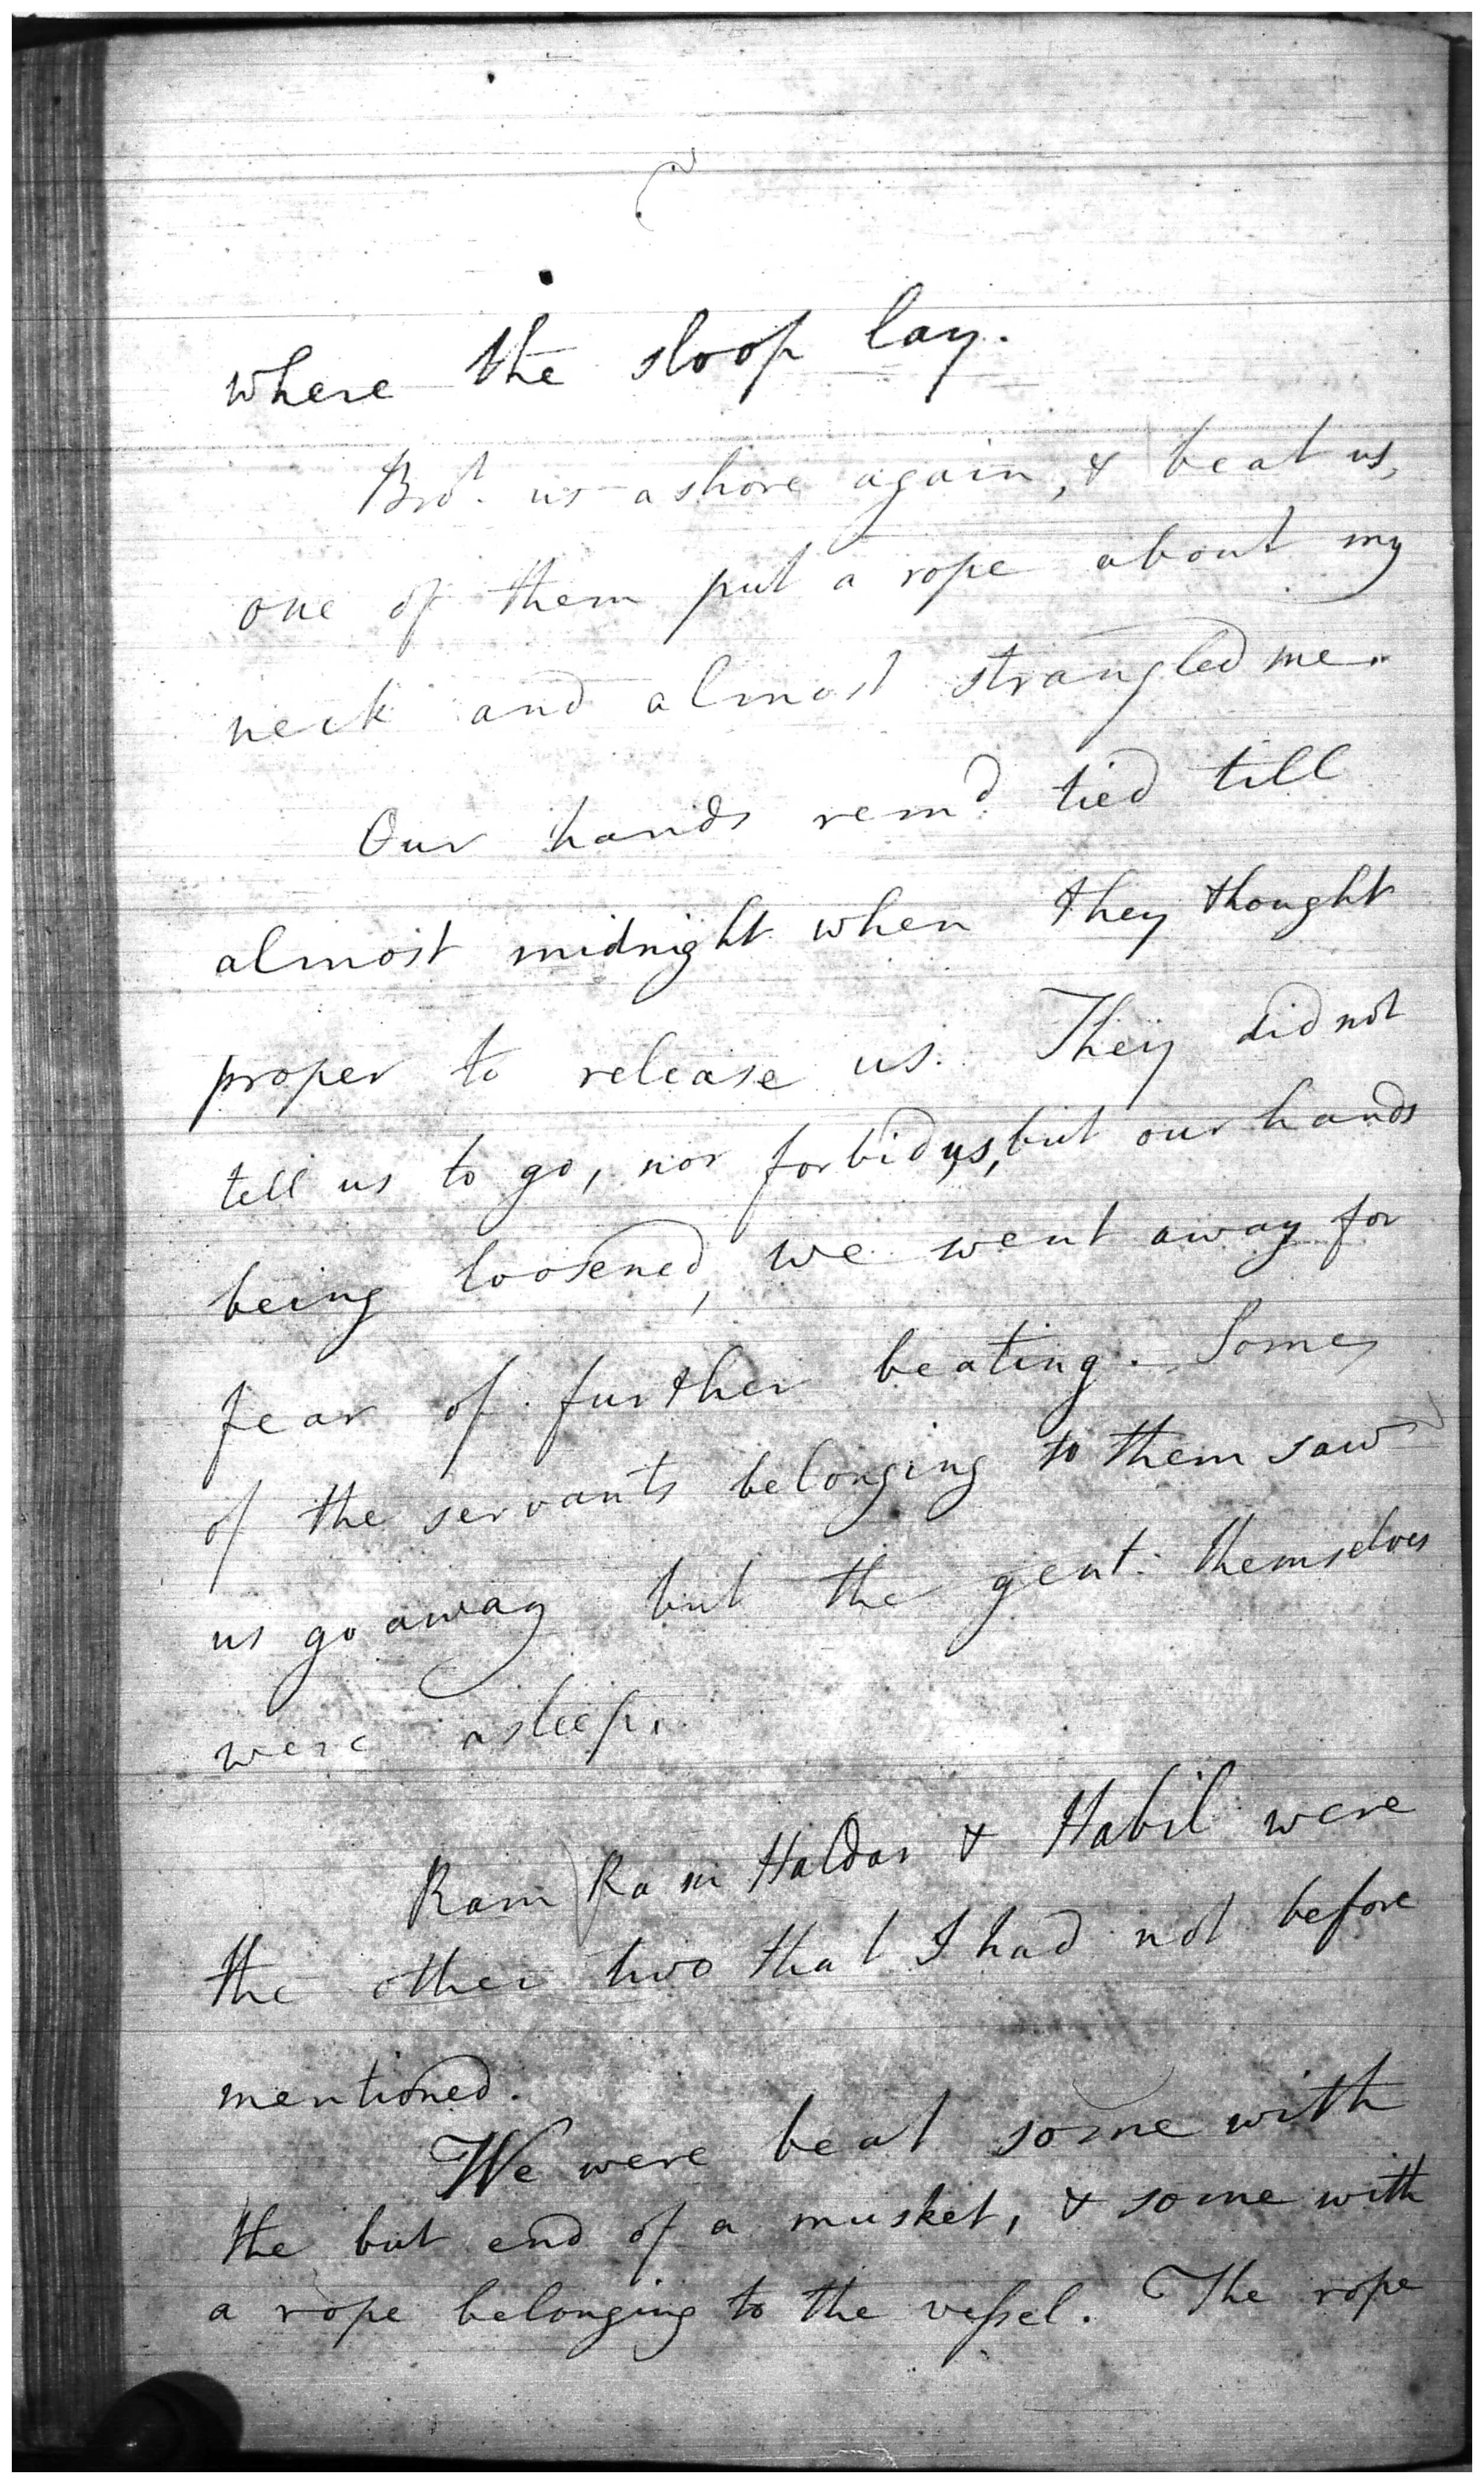 where the sloop lay.
Brot. us ashore again, & beat us,
one of them put a rope about my
neck and almost strangled me.
Our hands remd. tied till
almost midnight when they thought
proper to release us. They did not
tell us to go, nor forbid us, but our hands
being loosened, we went away for
fear of further beating. Some
of the servants belonging to them saw
us go away but the gent. themselves
were asleep.
Ram Ram Haldar & Habil were
the other two that I had not before
mentioned.
We were beat some with
the but end of a musket, & some with
a rope belonging to the vessel. The rope